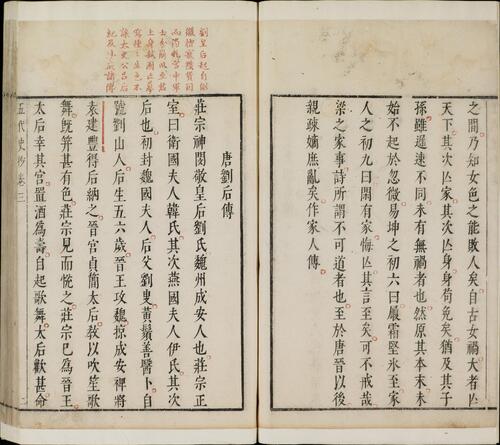 之間乃知女色之能敗人矣自古女禍大者亾
天下其次亾家其次亾身身苟免矣猶及其子
孫雖遲速不同未有無禍者也然原其本末未
始不起於忽微易坤之初六曰履霜堅氷至家
人之初九曰閑有家悔亾其言至矣可不戒哉
梁之家事詩所謂不可道者也至於唐晉以後
親疎嫡庶亂矣作家人傳
唐劉后傳
劉皇后起自
寫種種生色不
讓太史公呂后
莊宗神閔敬皇后劉氏魏州成安人也莊宗正
室曰衛國夫人韓氏其次燕國夫人伊氏其次
后也初封魏國夫人后父劉叟黃鬚善醫卜自
號劉山人后生五六歲晉王攻魏掠成安裨將
袁建豐得后納之晉宮貞簡太后教以吹笙歌
舞既笄甚有色莊宗見而悅之莊宗已為晉王
太后幸其宮置酒為壽自起歌舞太后歡甚命
五代史抄卷三